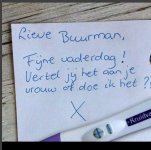 Lieve Buurman,
Fijne vaderdag!
Vertel jij het aan je
vrouw of doe ik het??
X
Kruidvat